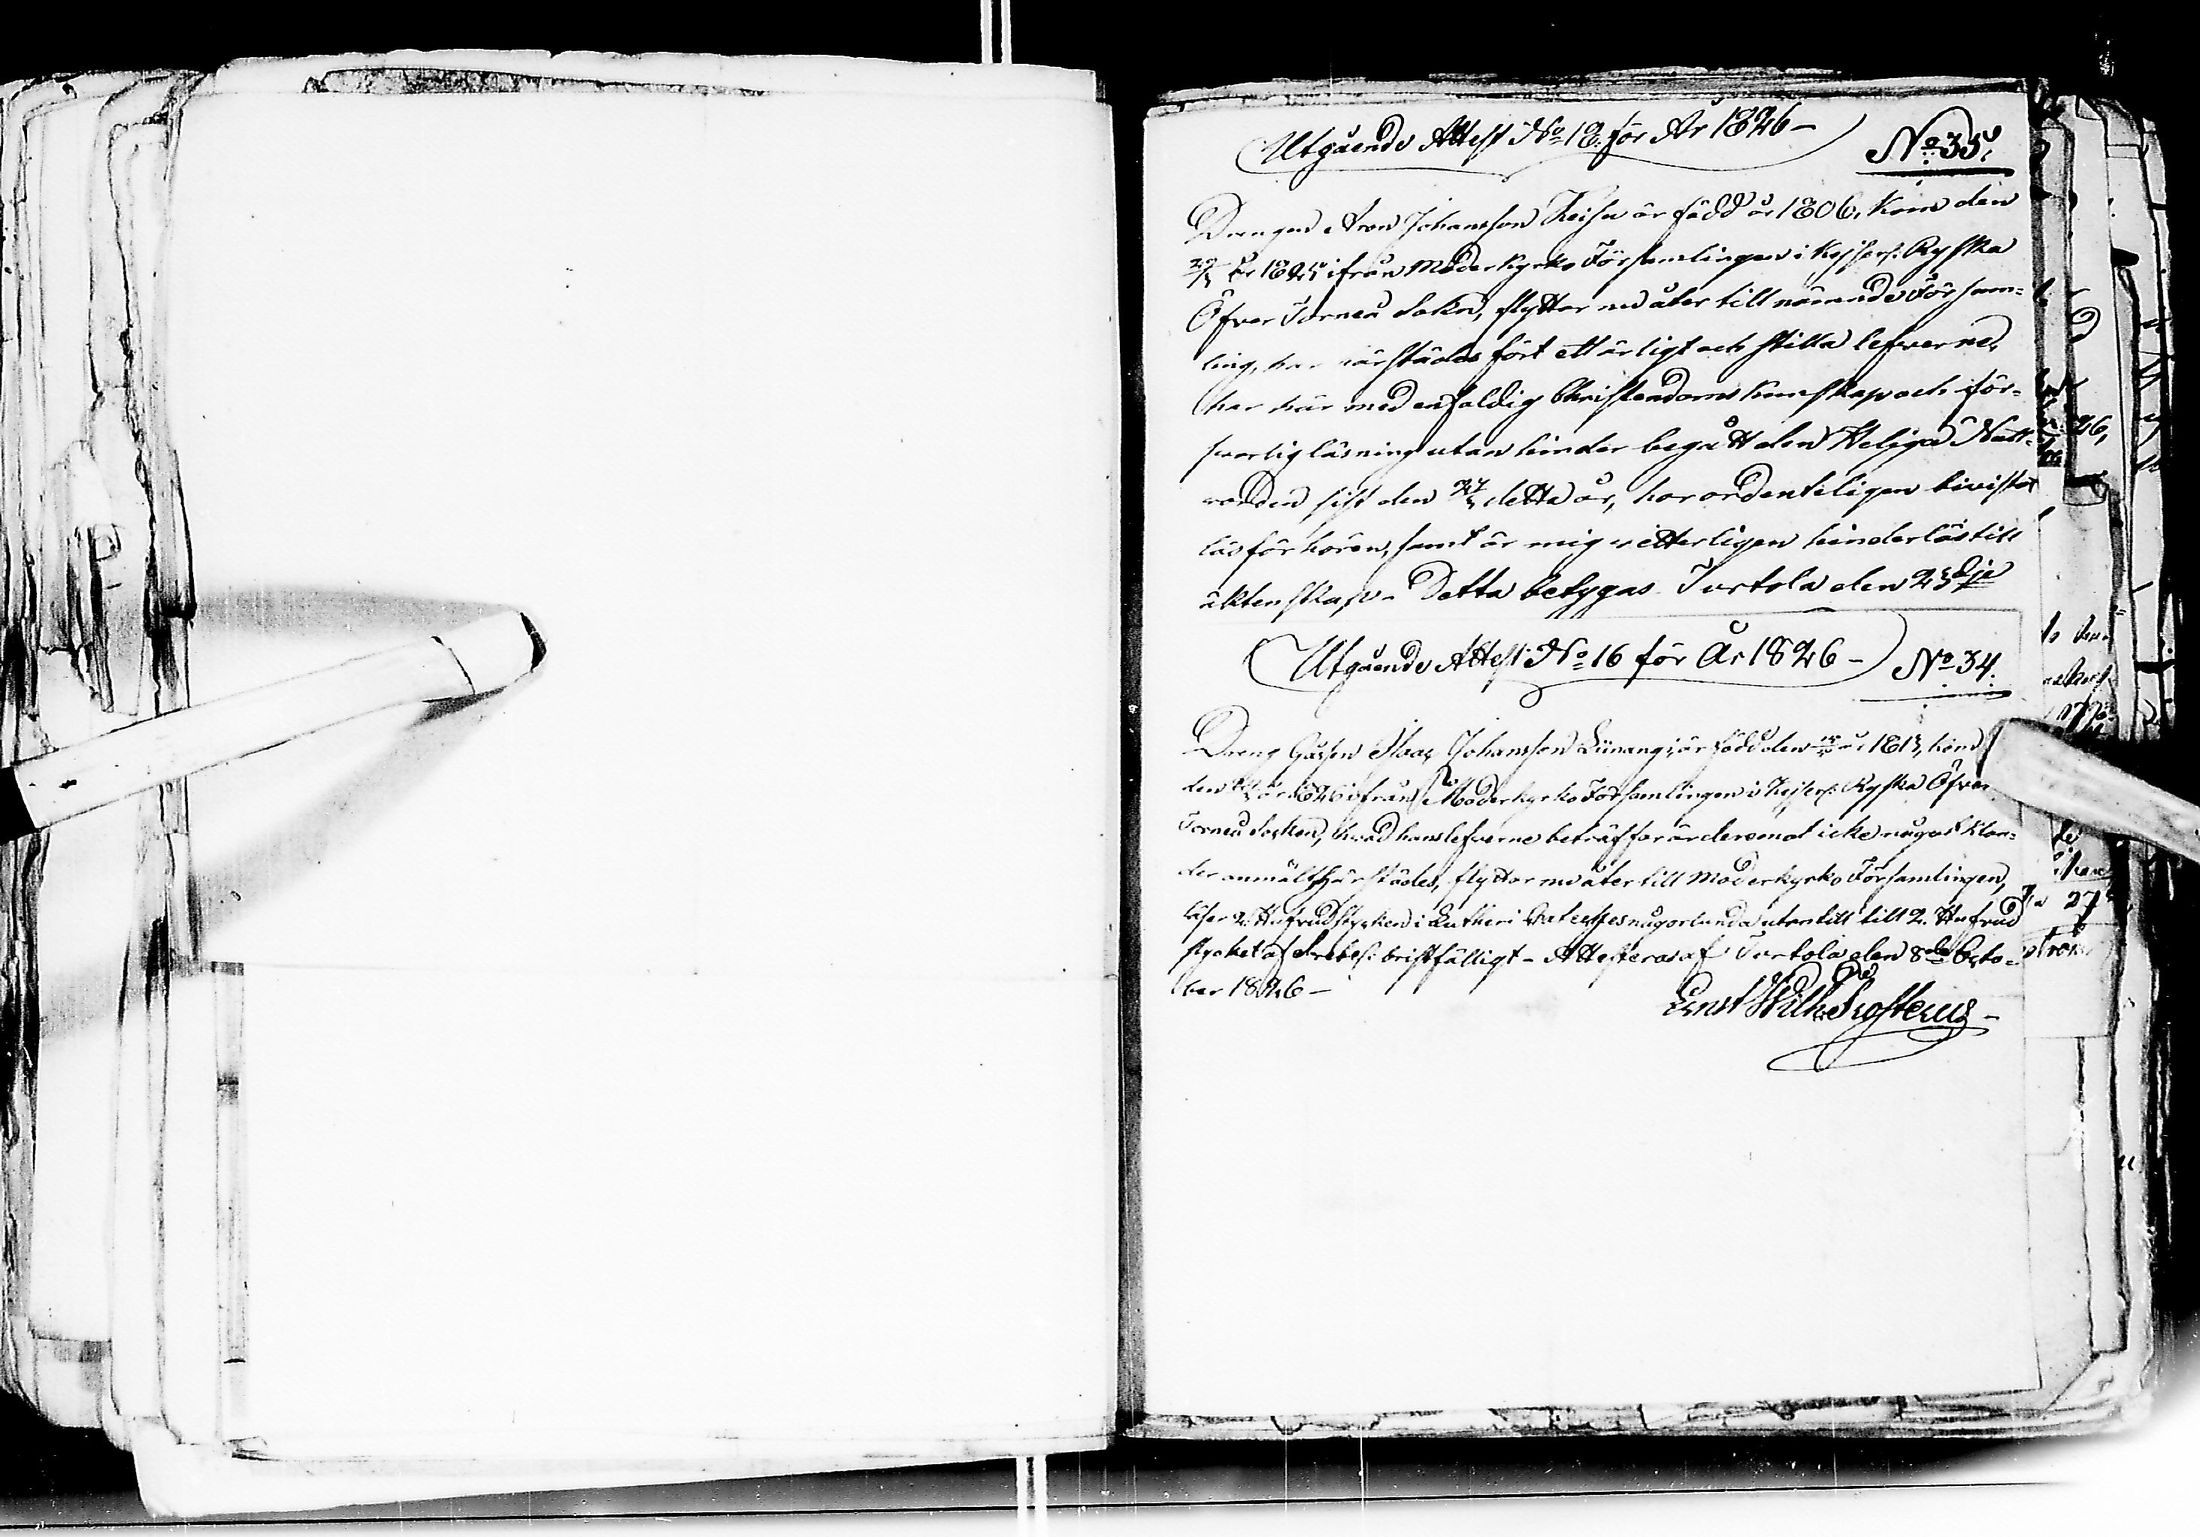 Utgående Attest No 18. för År 1826 –
No 35.
Drengen Aron Johansson Keisu är född år 1806, kom den
år 1825 ifrån Moderkyrko Församlingen i Kejserl: Ryska
Öfver Torneå Sokn, flyttar nu åter till nämnde Försam=
ling, har härstädes fört ett ärligt och stilla lefverne,
har här med enfaldig Christendoms kunskap och för=
svarlig läsning utan hinder begått den Heliga Natt=
varden sist den detta år, har ordenteligen bivistat
läsförhören, samt är mig vetterligen hinderlös till
äktenskap – Detta betygas Turtola den 23dje
Utgående Attest No 16 för År 1826 –
No 34.
Dreng Gåssen Isaac Johansson är född den år 1813, kom
den år 1826 ifrån Moderkyrko Församlingen i Kejserl: Ryska Öfver
Torneå Socken, hvad hans lefverne beträffar är deremot icke något klan=
der anmält härstädes, flyttar nu åter till Moderkyrko Församlingen,
läser 2. Hufvudstycken i Lutheri Cateches någorlunda utantill till 2. Hufvud
stycket af bristfälligt – Attesteras af Turtola den 8de Octo=
ber 1826 –
Ernst Wilh: